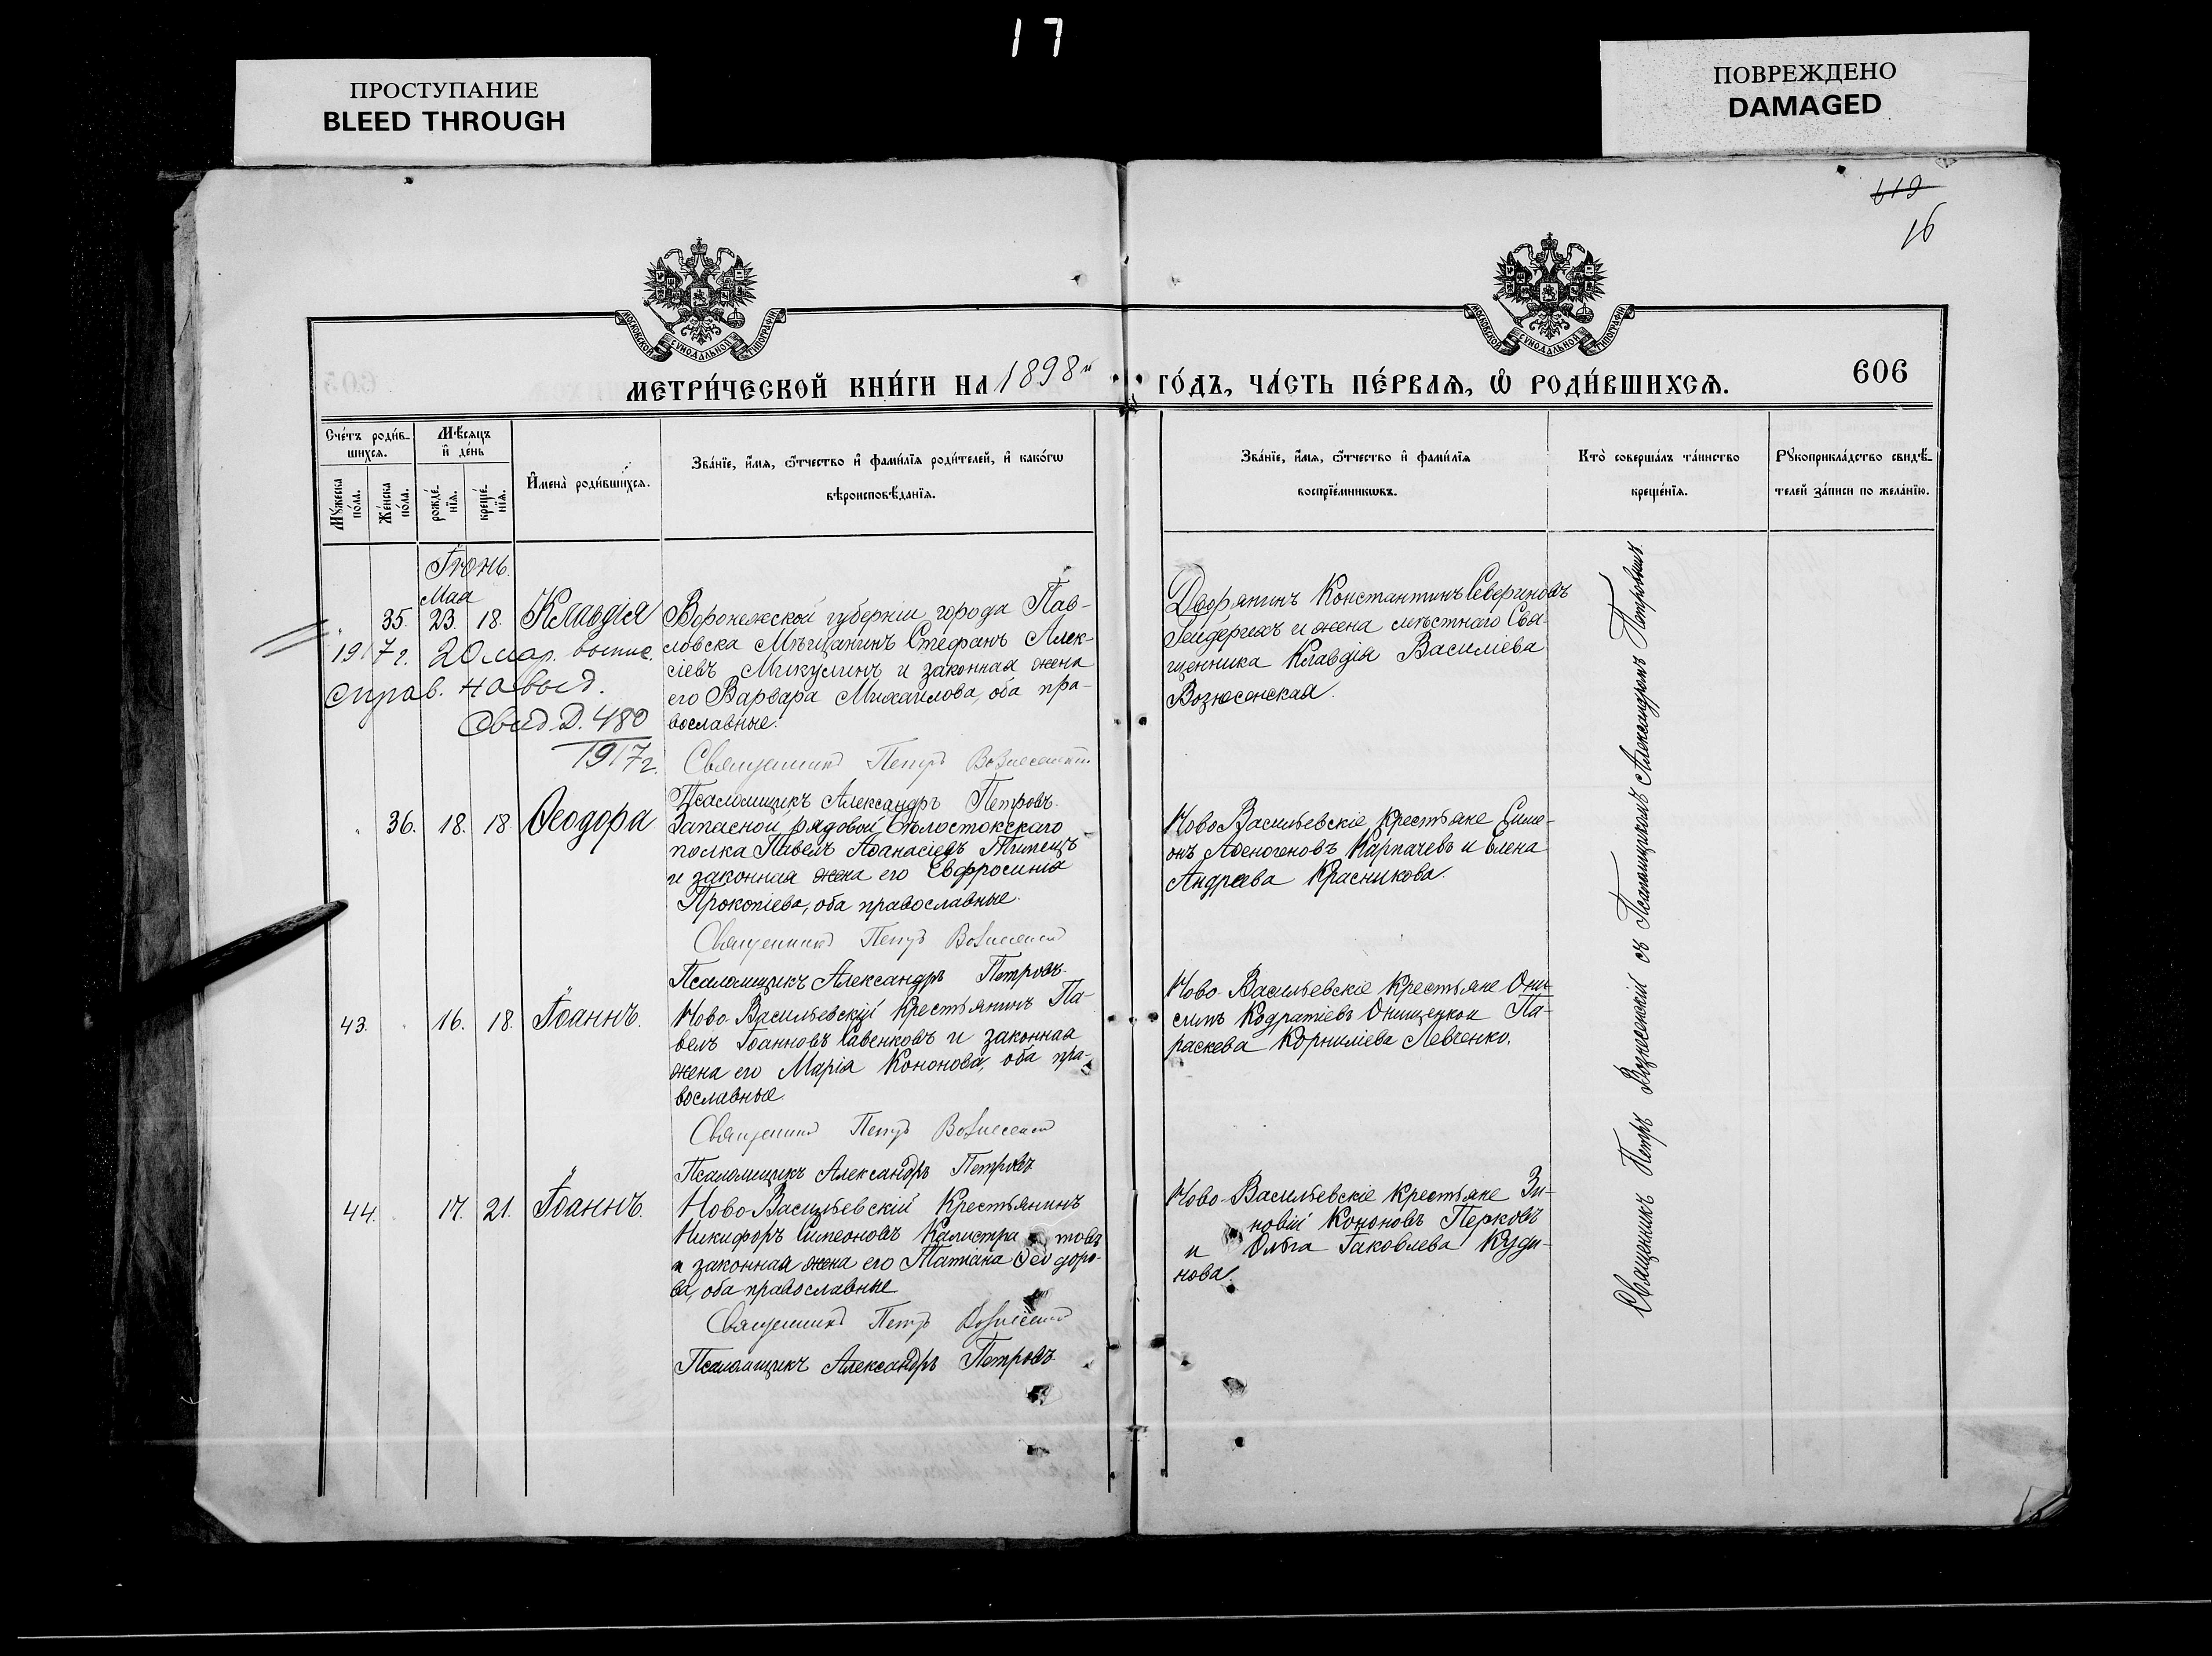 17
ПРОСТУПАНИЕ
BLEED THROUGH
ПОВРЕЖДЕНО
DAMAGED
612
16
МОСКОВСКОЙ СѴНОДАЛЬНОЙ ТИПОГРАФІИ
МОСКОВСКОЙ СѴНОДАЛЬНОЙ ТИПОГРАФІИ
МЕТРИ́ЧЕСКОЙ КНИ́ГИ НА 1898й
ГО́ДЪ, ЧА́СТЬ ПЕ́РВАѦ, Ѡ҆ РОДИ́ВШИХСѦ.
606
Сче́тъ роди́в-
шихсѧ.
Мѣ́сѧцъ
и҆ де́нь
Мꙋ́жеска
по́ла.
Же́нска
по́ла.
рожде́-
нїѧ.
креще́-
нїѧ.
И҆мена̀ роди́вшихсѧ.
Зва́нїе, и҆́мѧ, ѻ҆́тчество и҆ фами́лїѧ роди́телей, и҆ како́гѡ
вѣроисповѣ́данїѧ.
Зва́нїе, и҆́мѧ, ѻ҆́тчество и҆ фами́лїѧ
воспрїе́мникѡвъ.
Кто̀ соверша́лъ та́инство
креще́нїѧ.
Рꙋкоприкла́дство свидѣ́-
телей за́писи по жела́нїю.
Іюнь.
Мая
35. 23. 18. Клавдія
Воронежской губерніи города Пав-
ловска Мѣщанинъ Стефанъ Алек-
сіевъ Микулинъ и законная жена
его Варвара Михаилова, оба пра-
вославные.
1917 г. 20 мар.
справ.
Д. 480
1917 г.
Священникъ Петръ Вознесенскій
Псаломщикъ Александръ Петровъ.
Дворянинъ Константинъ Севериновъ
Гейдерихъ и жена мѣстнаго Свя-
щенника Клавдія Василіева
Вознесенская.
36. 18. 18. Ѳеодора
Запасной рядовой Бѣлостокскаго
полка Павелъ Аѳанасіевъ
и законная жена его Евфросинія
Прокопіева, оба православные.
Священникъ Петръ Вознесенскій
Псаломщикъ Александръ Петровъ.
Ново Васильевскіе Крестьяне Симе-
онъ Аѳеногеновъ Карпачевъ и Елена
Андреева Красникова.
43. 16. 18. Іоаннъ.
Ново-Васильевскій Крестьянинъ Па-
велъ Іоанновъ Савенковъ и законная
жена его Марія Кононова, оба пра-
вославные.
Священникъ Петръ Вознесенскій
Псаломщикъ Александръ Петровъ
Ново-Васильевскіе Крестьяне Они-
симъ Кодратіевъ Онищенко и Па-
раскева Корниліева Левченко.
44. 17. 21. Іоаннъ.
Ново-Васильевскій Крестьянинъ
Никифоръ Симеоновъ Калистратовъ
и законная жена его Татіана Ѳеодоро-
ва, оба православные
Священникъ Петръ Вознесенскій
Псаломщикъ Александръ Петровъ.
Ново-Васильевскіе Крестьяне Зи-
новій Кононовъ Перковъ
и Ольга Іаковлева Куди-
нова.
Священникъ Петръ Вознесенскій съ Псаломщикомъ Александромъ Петровымъ.